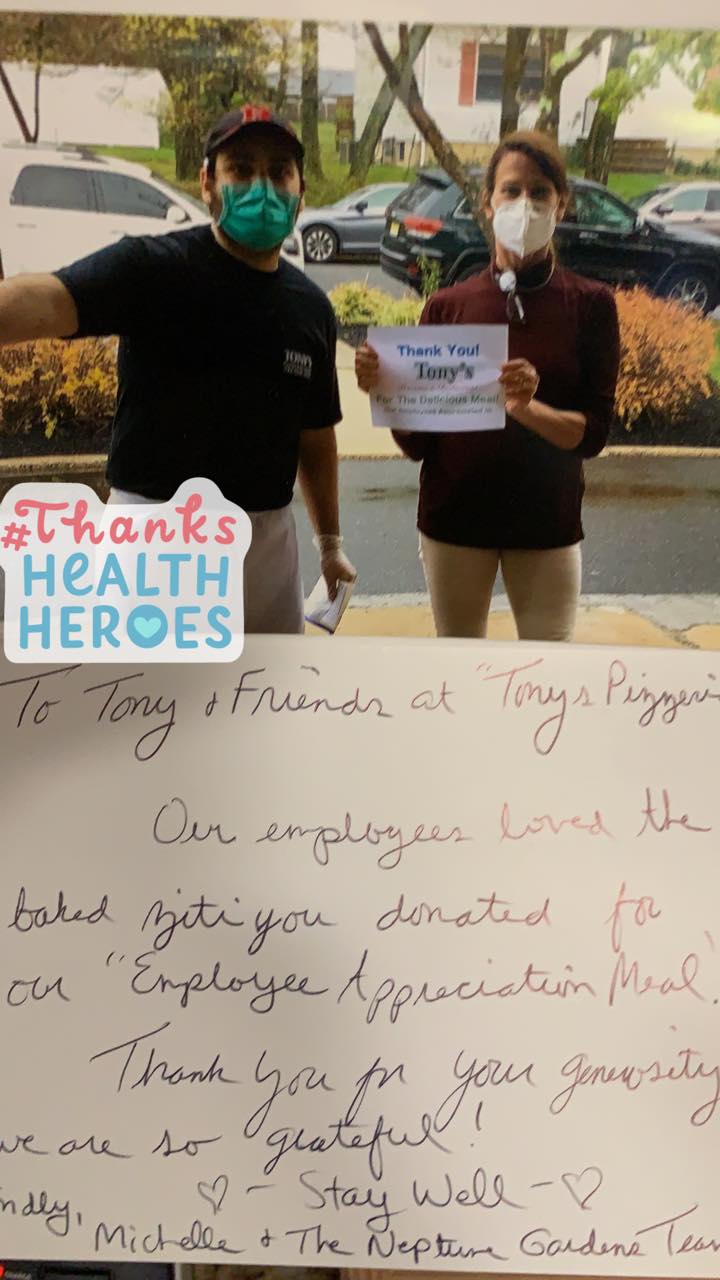 TONY'S
Thank You!
Tony's
For The Delicious Meal!
Our Employees Appreciated It!
#Thanks
HEALTH
HEROES
To Tony & Friends at "Tonys Pizzeri
Our employees loved the
baked ziti you donated for
our "Employee Appreciation Meal."
Thank you for your generosity
we are so grateful!
♡ - Stay Well - ♡
ndly,
Michelle & The Neptune Gardens Team